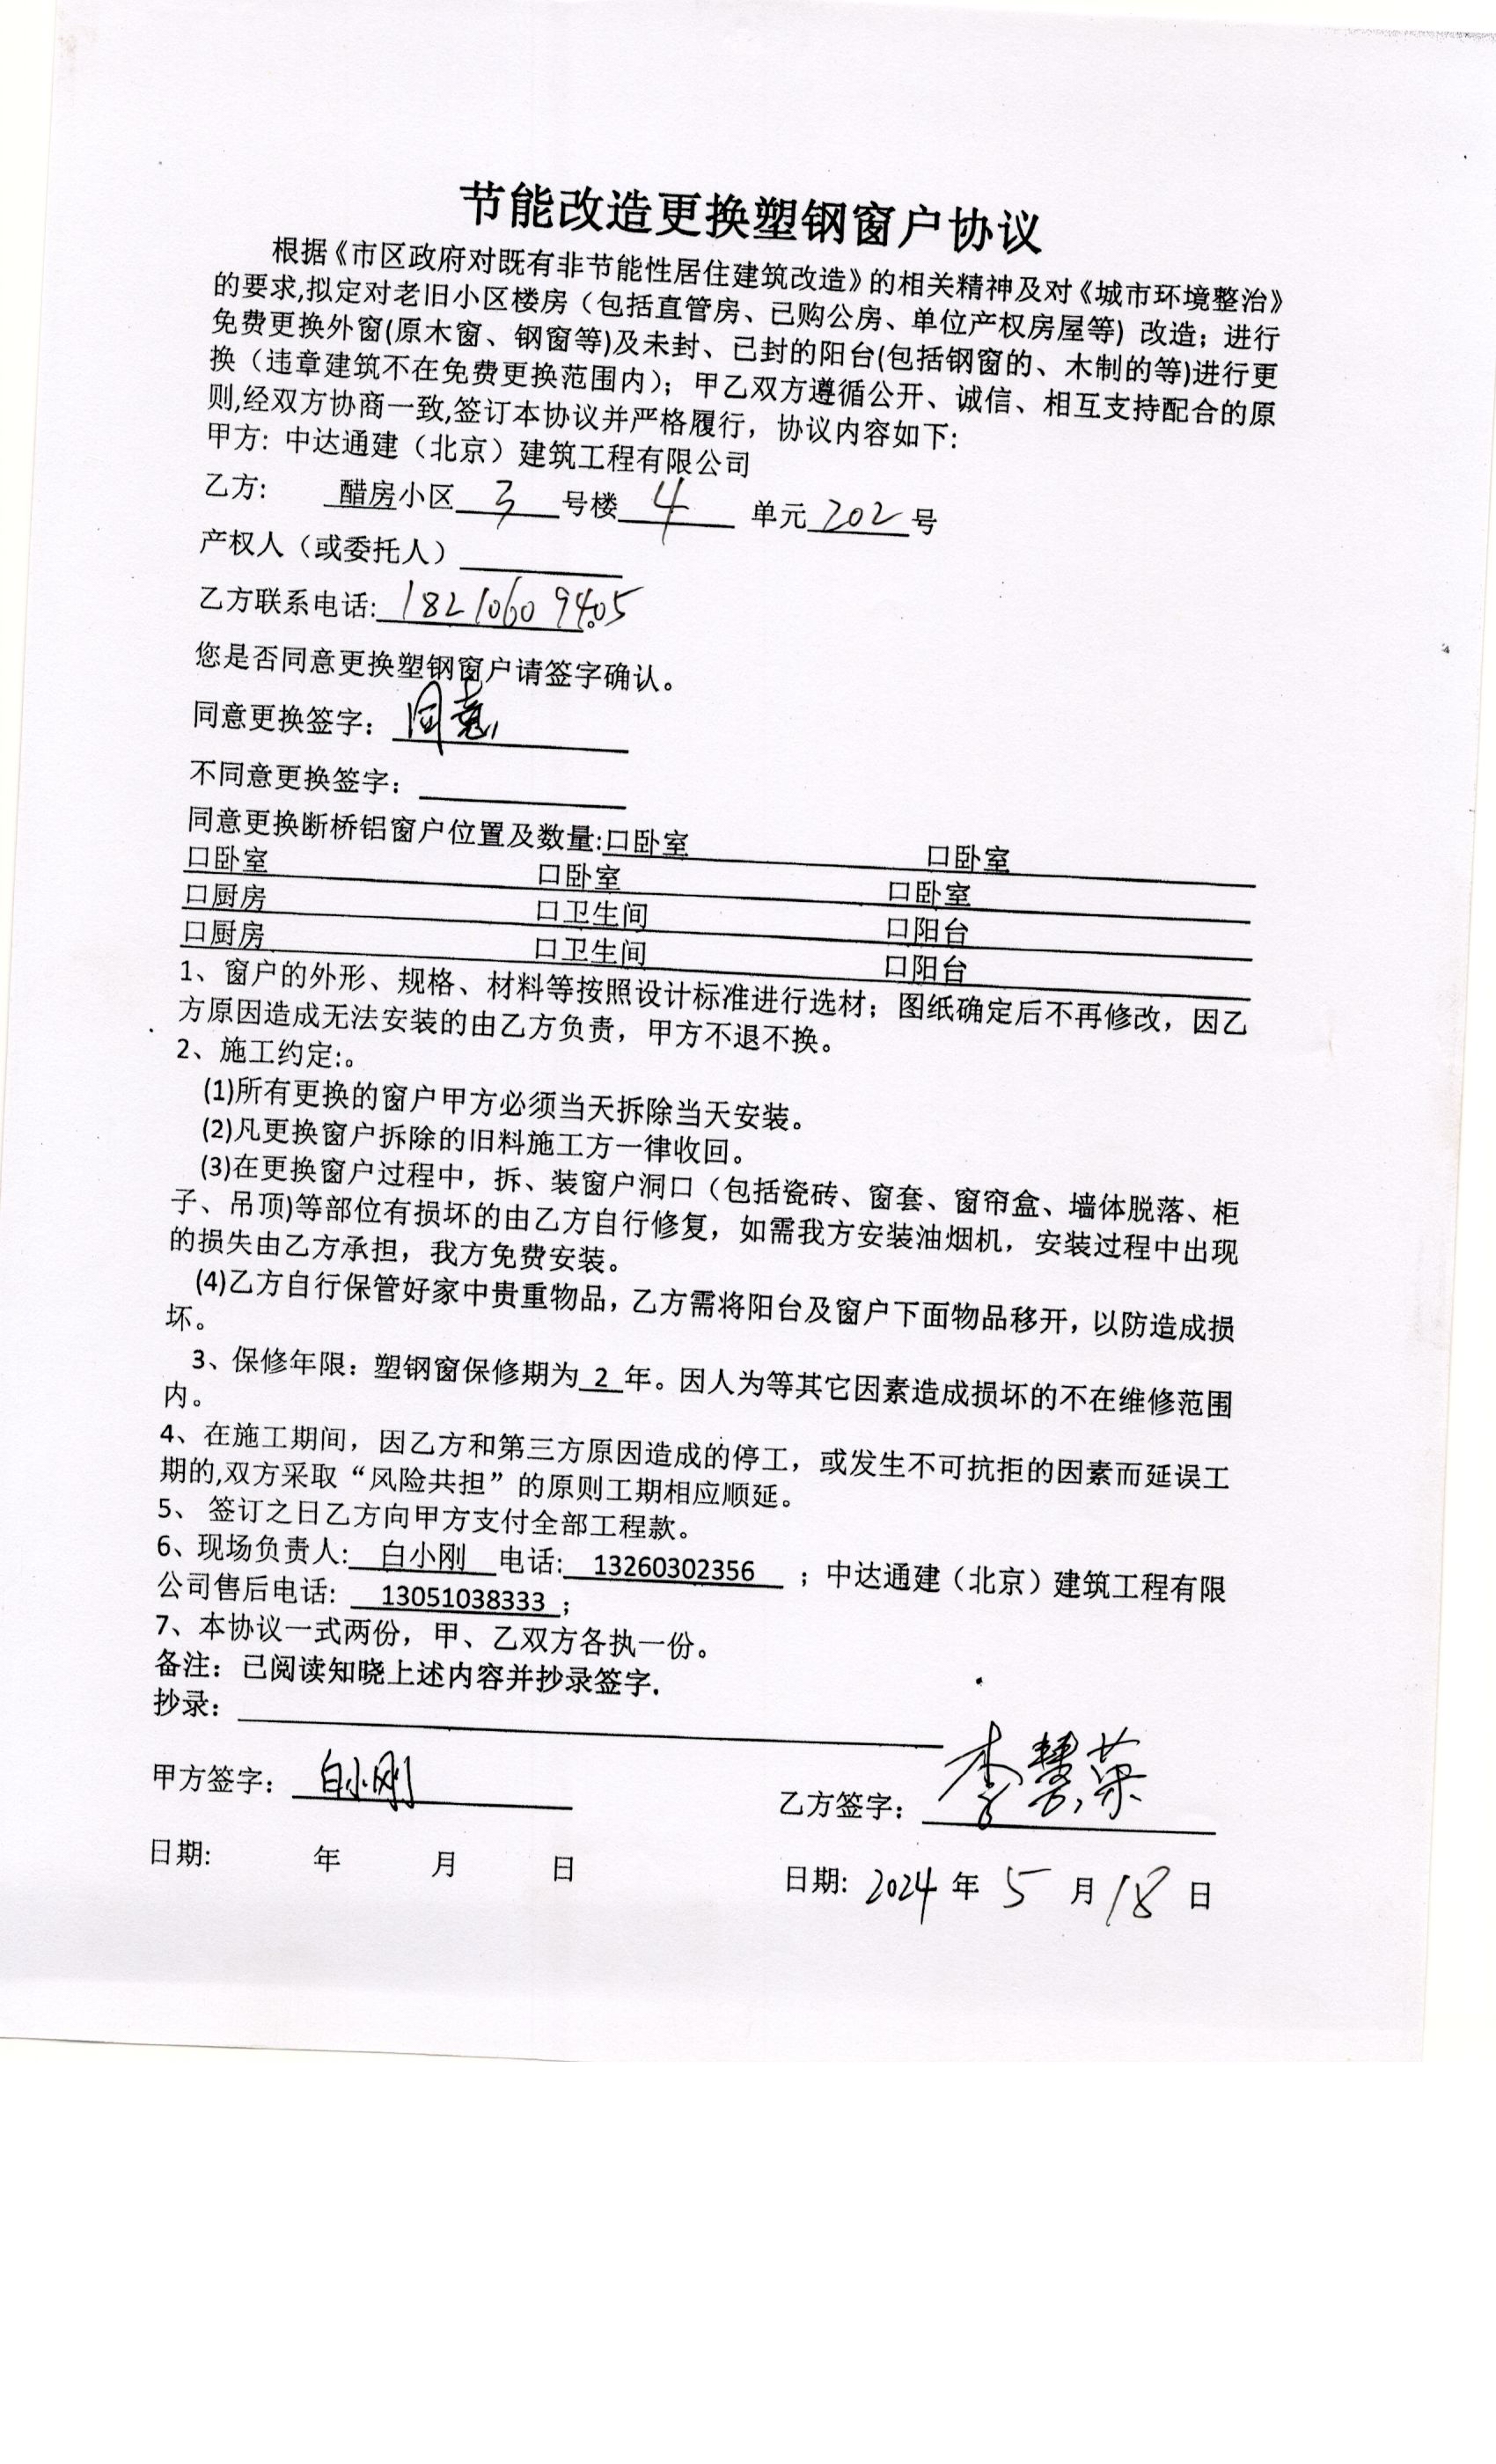 节能改造更换塑钢窗户协议
根据《市区政府对既有非节能性居住建筑改造》的相关精神及对《城市环境整治》
的要求,拟定对老旧小区楼房（包括直管房、已购公房、单位产权房屋等）改造；进行
免费更换外窗(原木窗、钢窗等)及未封、已封的阳台(包括钢窗的、木制的等)进行更
换（违章建筑不在免费更换范围内）；甲乙双方遵循公开、诚信、相互支持配合的原
则,经双方协商一致,签订本协议并严格履行，协议内容如下:
甲方: 中达通建（北京）建筑工程有限公司
乙方: 醋房小区 3 号楼 4 单元 202 号
产权人（或委托人）
乙方联系电话: 18210609405
您是否同意更换塑钢窗户请签字确认。
同意更换签字： 同意
不同意更换签字：
同意更换断桥铝窗户位置及数量:口卧室 口卧室
口卧室 口卧室 口卧室
口厨房 口卫生间 口阳台
口厨房 口卫生间 口阳台
1、窗户的外形、规格、材料等按照设计标准进行选材；图纸确定后不再修改，因乙
方原因造成无法安装的由乙方负责，甲方不退不换。
2、施工约定:。
(1)所有更换的窗户甲方必须当天拆除当天安装。
(2)凡更换窗户拆除的旧料施工方一律收回。
(3)在更换窗户过程中，拆、装窗户洞口（包括瓷砖、窗套、窗帘盒、墙体脱落、柜
子、吊顶)等部位有损坏的由乙方自行修复，如需我方安装油烟机，安装过程中出现
的损失由乙方承担，我方免费安装。
(4)乙方自行保管好家中贵重物品，乙方需将阳台及窗户下面物品移开，以防造成损
坏。
3、保修年限：塑钢窗保修期为 2 年。因人为等其它因素造成损坏的不在维修范围
内。
4、在施工期间，因乙方和第三方原因造成的停工，或发生不可抗拒的因素而延误工
期的,双方采取“风险共担”的原则工期相应顺延。
5、 签订之日乙方向甲方支付全部工程款。
6、现场负责人: 白小刚 电话: 13260302356 ；中达通建（北京）建筑工程有限
公司售后电话: 13051038333 ；
7、本协议一式两份，甲、乙双方各执一份。
备注：已阅读知晓上述内容并抄录签字.
抄录：
甲方签字： 白小刚 乙方签字： 李慧荣
日期: 年 月 日 日期: 2024 年 5 月 18 日